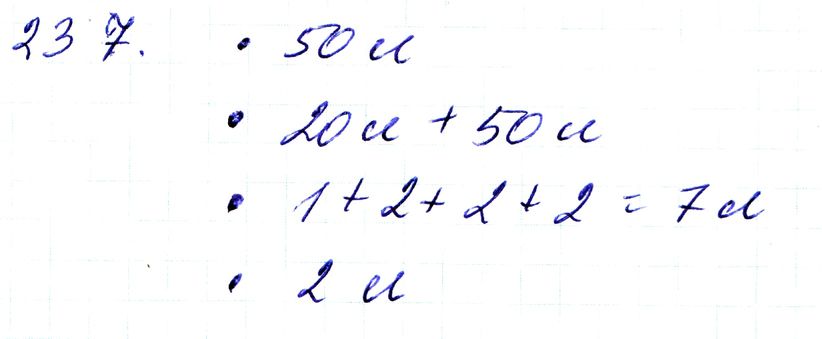 237. • 50 л
• 20 л + 50 л
• 1 + 2 + 2 + 2 = 7 л
• 2 л